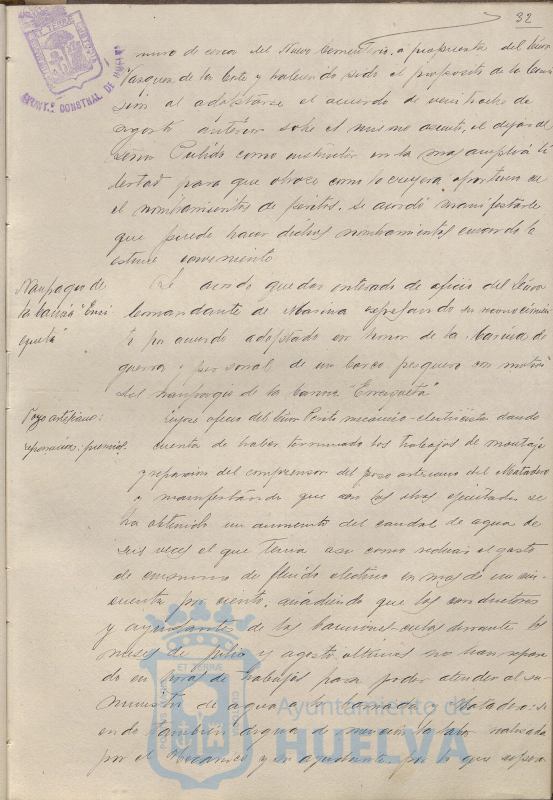 32
muro de cerca del Nuevo Cementerio, a propuesta del Señor
Vazquez de la Corte y habiendo sido el propósito de la Comi
sión al adoptarse el acuerdo de veintiocho de
agosto anterior sobre el mismo asunto, el dejar al
Señor Pulido como instructor en la mas amplia li
bertad para que obrase como lo creyera oportuno en
el nombramiento de peritos, se acordó manifestarle
que puede hacer dichos nombramientos cuando lo
estime conveniente
Naufragio de
la lancha "Enri
queta"
Se acordó quedar enterado de oficio del Señor
Comandante de Marina expresando su reconocimien
to por acuerdo adoptado en honor de la Marina de
guerra y personal de un barco pesquero con motivo
del naufragio de la "Enriqueta"
Pozo artesiano:
reparación: premios.
Leyose oficio del Señor Perito mecánico-electricista dando
cuenta de haber terminado los trabajos de montaje
y reparación del compresor del pozo artesiano del Matadero
y manifestando que con las obras ejecutadas se
ha obtenido un aumento del caudal de agua de
seis veces el que tenia asi como reducir el gasto
de consumo de fluido electrico en mas de un cin
cuenta por ciento, añadiendo que los conductores
y ayudantes de los camiones-cubas durante los
meses de Julio y agosto ultimos no han repara
do en horas de trabajos para poder atender al su
ministro de agua a la y Matadero, si
endo tambien digna de mencion la labor realizada
por el Mecanico y su ayudante, por lo que espera
Ayuntamiento de
HUELVA